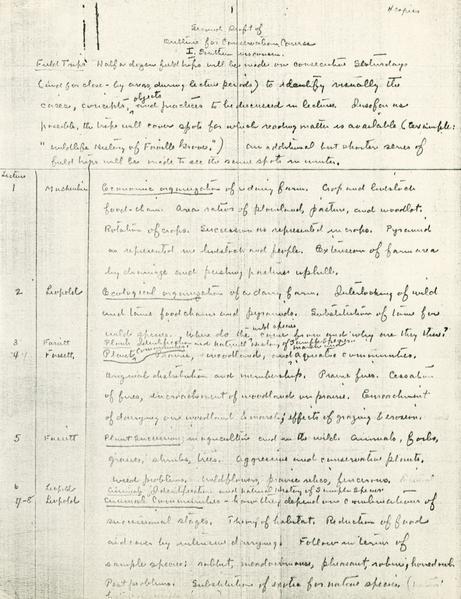 4 copies
Second Draft of
Outline for Conservation Course
I. Southern Wisconsin.
Field Trips Half a dozen field trips will be made on consecutive Saturdays
(and for close-by areas, during lecture periods) to identify visually the
cases, concepts, objects and practices to be discussed in lecture. Insofar as
possible, the trips will cover spots for which reading matter is available (example:
"Wildlife History of Faville Grove.") An additional but shorter series of
field trips will be made to see the same spots in winter.
Lecture
1 Economic organization of a dairy farm. Crop and livestock
food-chain. Area ratios of plowland, pasture, and woodlot.
Rotation of crops. Succession as represented in crops. Pyramid
as represented in livestock and people. Extension of farm area
by drainage and pushing pastures uphill.
2 Leopold Ecological organization of a dairy farm. Interlocking of wild
and tame food chains and pyramids. Substitution of tame for
wild species. Where do the wild species come from and why are they there?
3 Fassett Plant Identification and natural history of sample species
4 Fassett, Plant Communities Prairie, woodland, marsh and aquatic communities.
Original distribution and membership. Prairie fires. Cessation
of fires, encroachment of woodland on prairie. Encroachment
of dairying on woodland & marsh; effects of grazing & erosion.
5 Fassett Plant Succession in agriculture and in the wild. Animals, forbs,
grasses, shrubs, trees. Aggressive and conservative plants.
Weed problems. Wildflowers, prairie relics, fencerows.
6 Leopold Animal Identification and natural history of sample species
7-8 Leopold Animal Communities - how they depend on combinations of
successional stages. Theory of habitat. Reduction of food
and cover by intensive dairying. Follow in terms of
sample species: rabbit, meadowmouse, pheasant, robin, horned owl
Pest problems. Substitution of exotics for native species